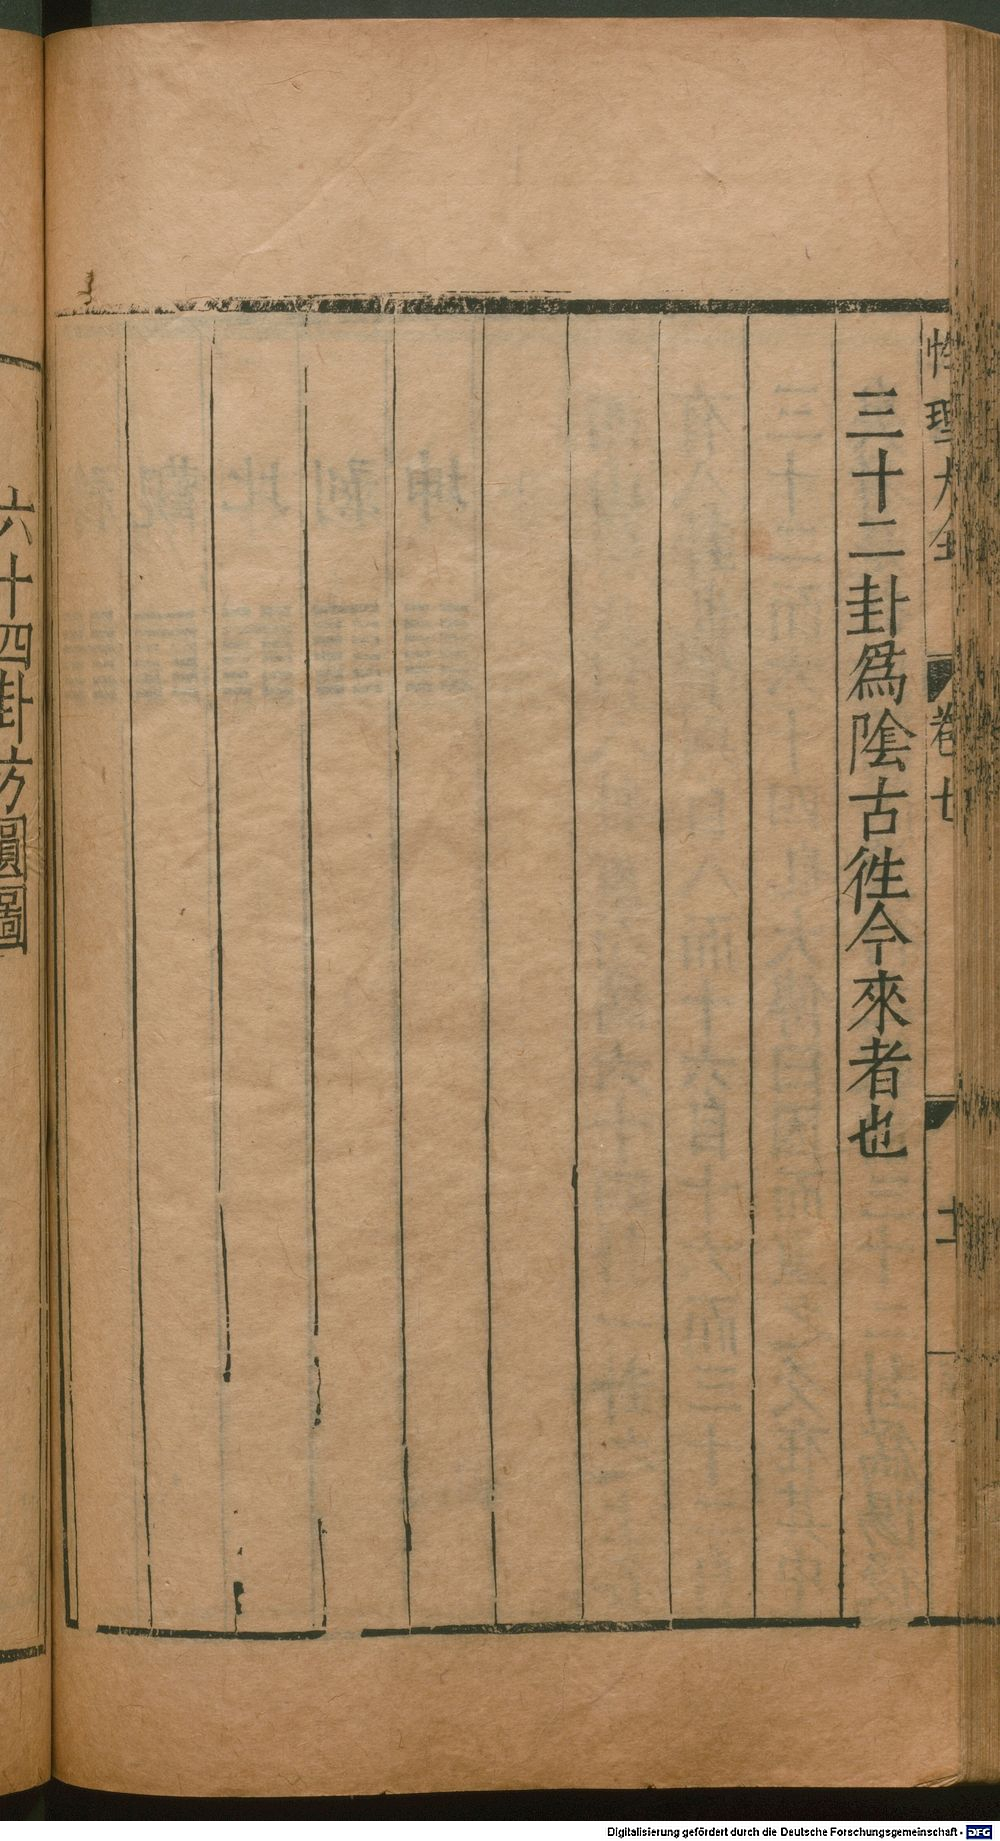 性理大全 卷七
三十二卦爲陰古徃今來者也
六十四卦方圓圖
Digitalisierung gefördert durch die Deutsche Forschungsgemeinschaft - DFG